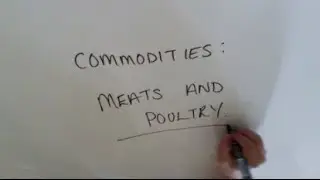 COMMODITIES:
MEATS AND
POULTRY